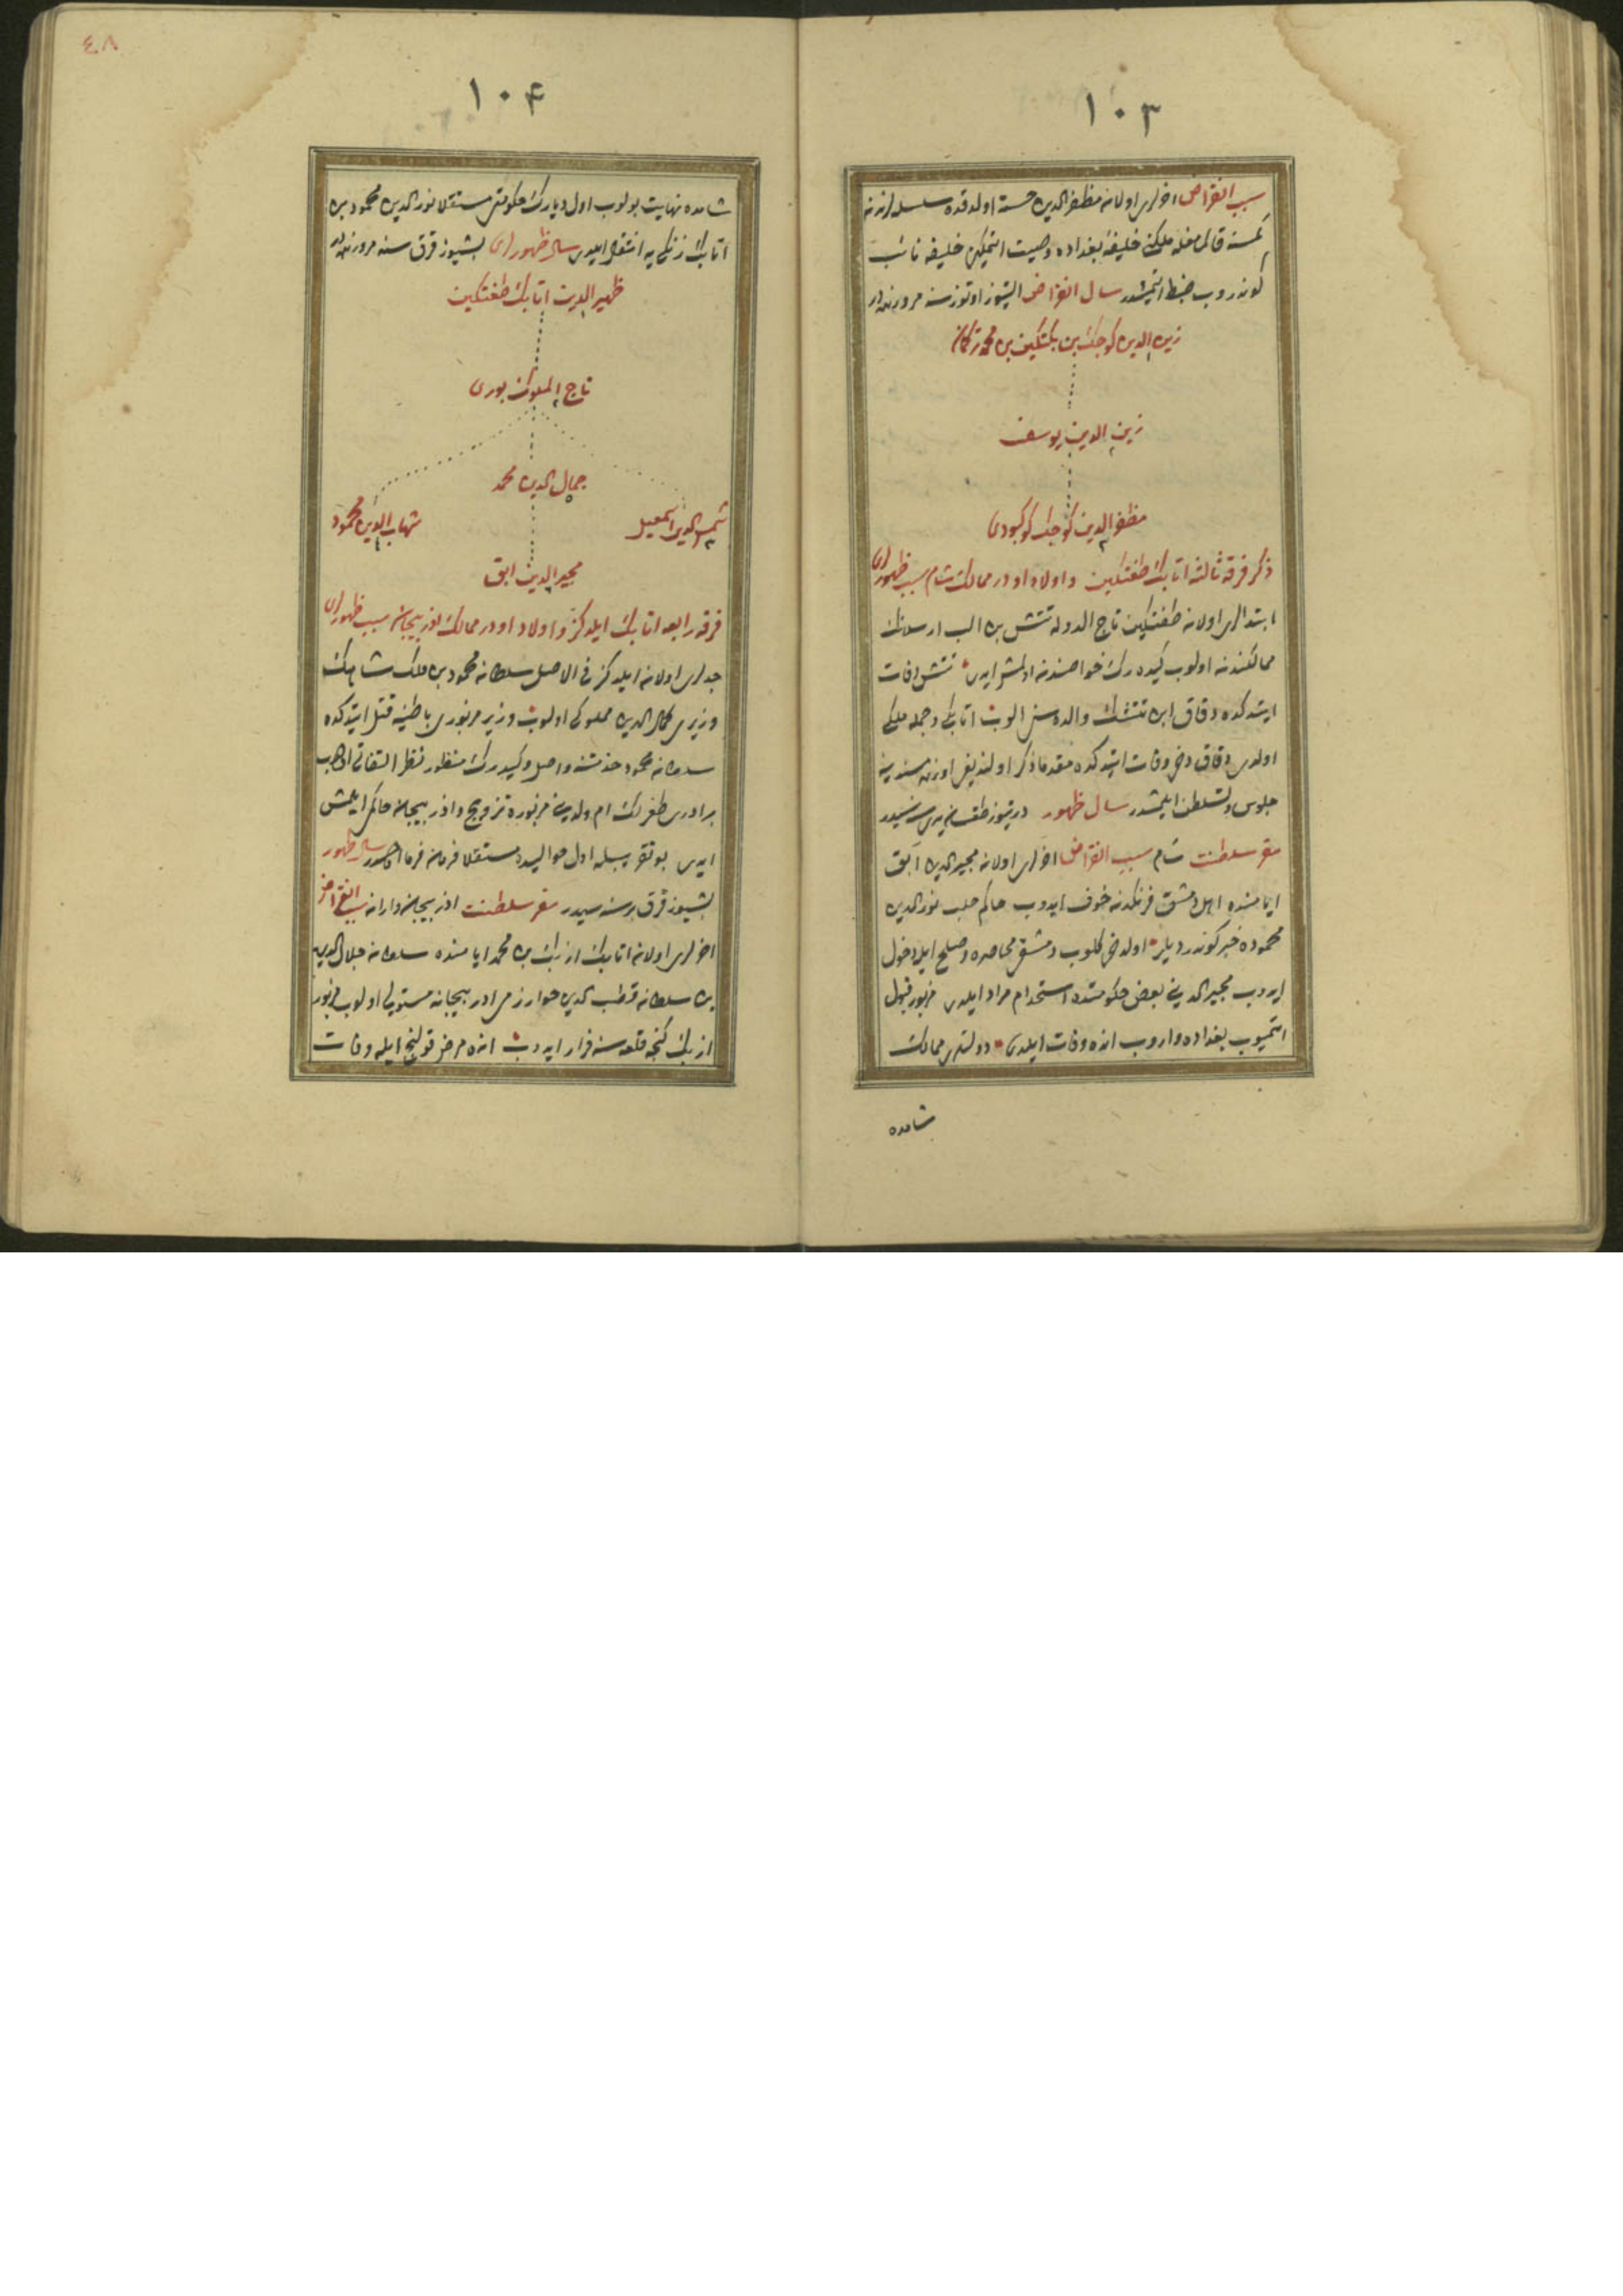 ١٠٣
سبب انقراض اخرلری اولان مظفر الدین خسته اولدقده سلسله لرندن
کمسنه قالمامغله ملکنی خلیفهٔ بغداده وصیت ایتمکین خلیفه نائب
کوندروب ضبط ایتمشدر سال انقراض التیوز اوتوز سنه مرورنده در
زین الدین کوجک بن بکتکین بن محمد ترکمان
زین الدین یوسف
مظفر الدین کوجک کوکبوری
ذکر فرقه ثالثه اتابک طغتکین و اولاد او در ممالک شام سبب ظهورلری
ابتدالری اولان طغتکین تاج الدوله تتش بن الب ارسلانک
ممالکندن اولوب کیده رک خواصندن اولمش ایدی تتش وفات
ایتدکده دقاق ابن تتشک والده سنی الوب اتابکی و جمله ملکی
اولدی دقاق دخی وفات ایتدکده مقدما ذکر اولندیغی اوزره مسندینه
جلوس و تسلطن ایلمشدر سال ظهور درتیوز طقسان یدی سنه سیدر
مقر سلطنت شام سبب انقراض اخرلری اولان مجیر الدین ابق
ایامنده اهل دمشق فرنکدن خوف ایدوب حاکم حلب نور الدین
محموده خبر کوندردیلر اولدخی کلوب دمشقی محاصره و صلح ایله دخول
ایدوب مجیر الدینی بعض حکومتده استخدام مراد ایلدی مزبور قبول
ایتمیوب بغداده واروب انده وفات ایلدی دولتلری ممالک
شامده
١٠۴
٤٨
شامده نهایت بولوب اول دیارک حکومتی مستقلا نور الدین محمود بن
اتابک زنکی یه انتقال ایلدی سال ظهورلری بشیوز قرق سنه مرورنده در
ظهیر الدین اتابک طغتکین
تاج الملوک بوری
جمال الدین محمد
شمس الدین اسمعیل
شهاب الدین محمود
مجیر الدین ابق
فرقه رابعه اتابک ایلدکز و اولاد او در ممالک اذربیجان سبب ظهورلری
جدلری اولان ایلدکز فی الاصل سلطان محمود بن ملک شاهک
وزیری کمال الدین مملوکی اولوب وزیر مزبوری باطنیه قتل ایتدکده
سلطان محمود خدمتنه واصل و کیدرک منظور نظر التفاتی اولوب
برادری طغرلک ام ولدینی مزبوره تزویج و اذربیجانه حاکم ایلمش
ایدی بو تقریبله اول حوالیده مستقلا فرمان فرما اولمشدر سال ظهور
بشیوز قرق بر سنه سیدر مقر سلطنت اذربیجان و اران سبب انقراض
اخرلری اولان اتابک ازبک بن محمد ایامنده سلطان جلال الدین
بن سلطان قطب الدین خوارزمی اذربیجانه مستولی اولوب مزبور
ازبک کنجه قلعه سنه فرار ایدوب انده مرض قولنج ایله وفات